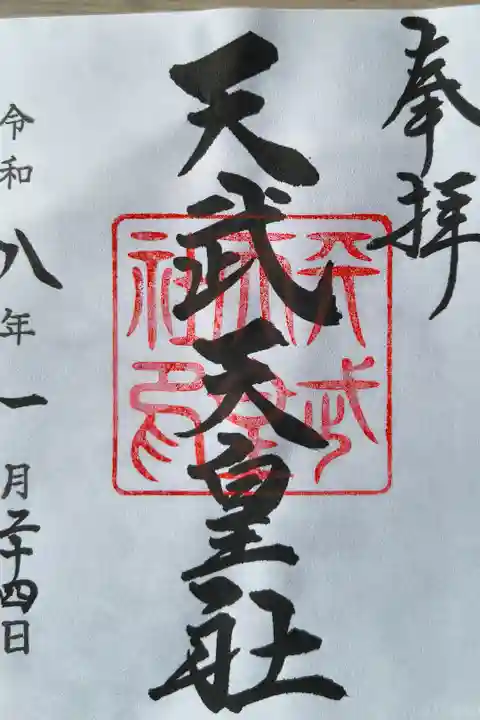 奉拝
天武天皇社
天武天皇社印
令和八年一月二十四日